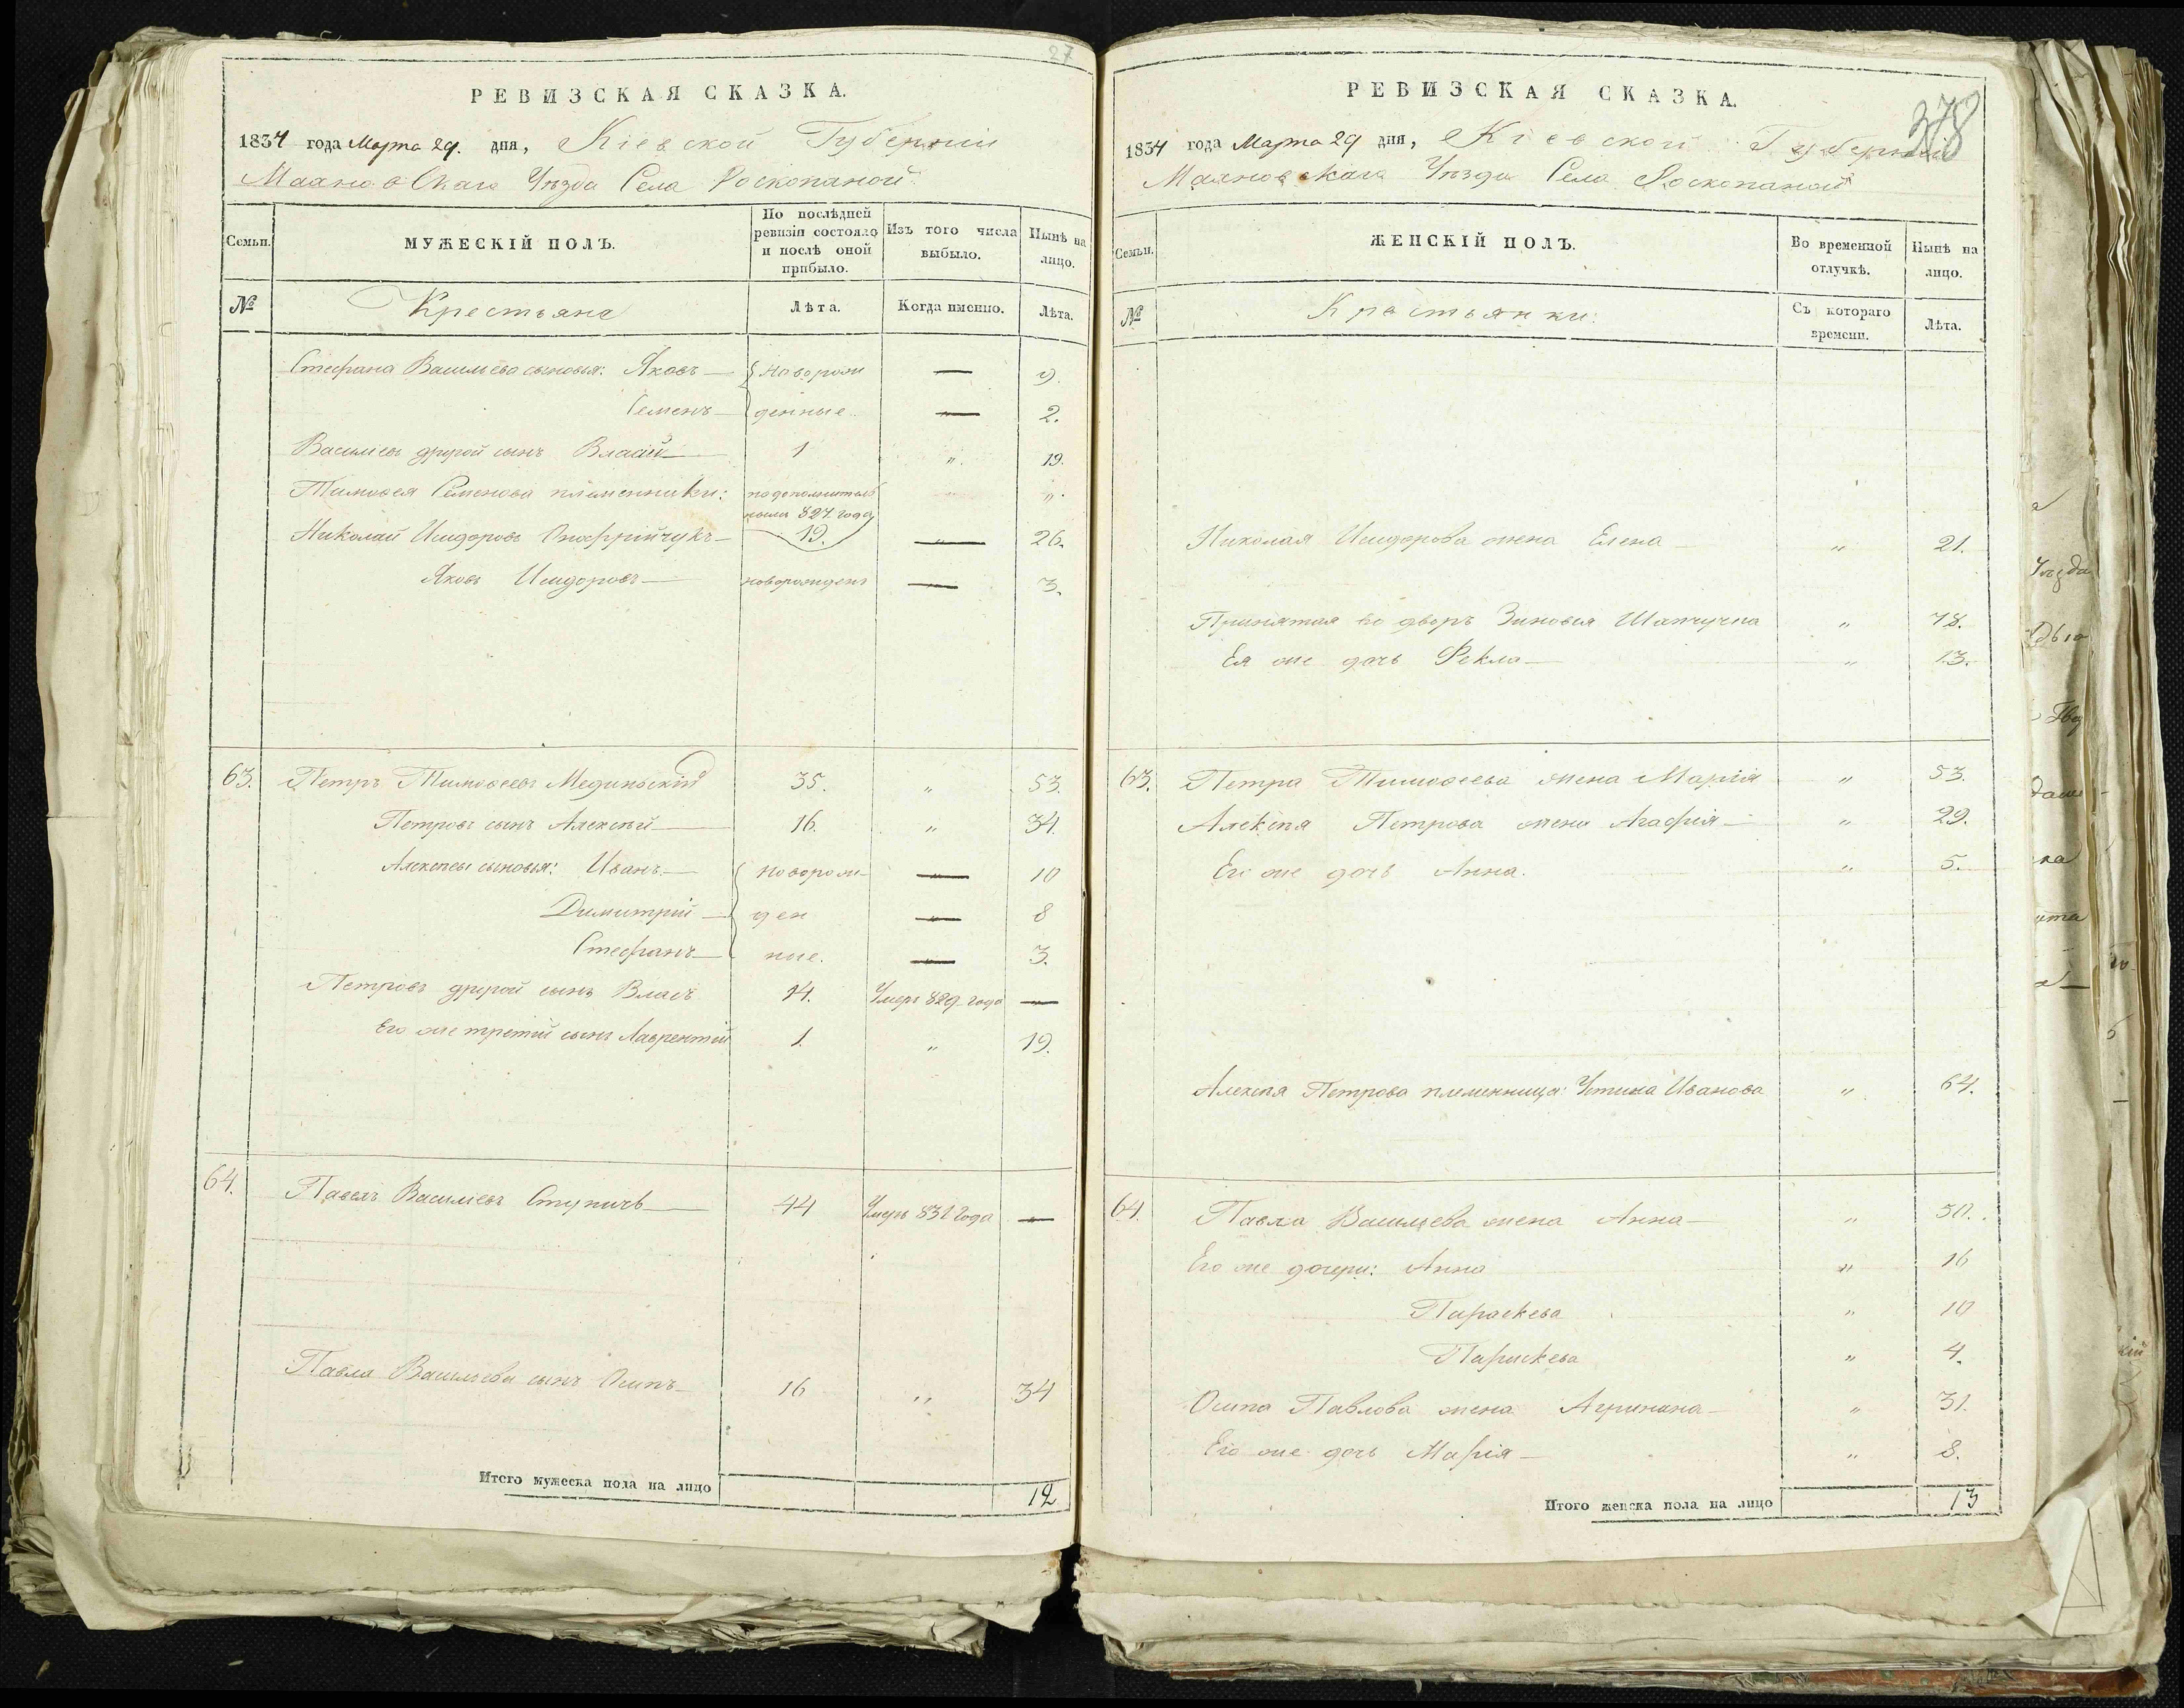 27
РЕВИЗСКАЯ СКАЗКА.
1834 года Марта 29. дня, Кіевской Губерніи
Уѣзда Села Роскопаной
Семьи.
МУЖЕСКІЙ ПОЛЪ.
По послѣдней ревизіи состояло и послѣ оной прибыло.
Изъ того числа выбыло.
Нынѣ на лицо.
№
Крестьяне
Лѣта.
Когда именно.
Лѣта.
Стефана Васильева сыновья: Яковъ новорож 9.
Семенъ денные. 2.
Васильевъ другой сынъ Власій 1 „ 19.
Тимофея Семенова племенники: „
827 года
Николай Исидоровъ Онофрійчукъ 19. „ 26.
Яковъ Исидоровъ новорожденъ 3.
63. Петръ Тимофеевъ 35. „ 53.
Петровъ сынъ Алексѣй 16. „ 34.
Алексѣевы сыновья: Иванъ новорож „ 10
Димитрій ден „ 8
Стефанъ ные. „ 3.
Петровъ другой сынъ Власъ 14. Умеръ 829 года
Его же третій сынъ Лаврентій 1. „ 19.
64. Павелъ Васильевъ Ступичъ 44 Умеръ 831 года
Павла Васильева сынъ Осипъ 16 „ 34
Итого мужеска пола на лицо 12
РЕВИЗСКАЯ СКАЗКА.
378
1834 года Марта 29 дня, Кіевской Губерніи
Уѣзда Села Роскопаной
Семьи.
ЖЕНСКІЙ ПОЛЪ.
Во временной отлучкѣ.
Нынѣ на лицо.
№
Крестьянки:
Съ котораго времени.
Лѣта.
Николая Исидорова жена Елена „ 21.
Принятая во дворъ Зиновея „
Ея же дочь Фекла „ 13.
63. Петра Тимофеева жена Марія „ 53.
Алексѣя Петрова жена Агафія „ 29.
Его же дочь Анна. „ 5.
Алексѣя Петрова племенница: Устина Иванова „ 64.
64. Павла Васильева жена Анна „ 50.
Его же дочери: Анна „ 16
Параскева „ 10
Параскева „ 4.
Осипа Павлова жена Агрипина „ 31.
Его же дочь Марія „ 8.
Итого женска пола на лицо 13